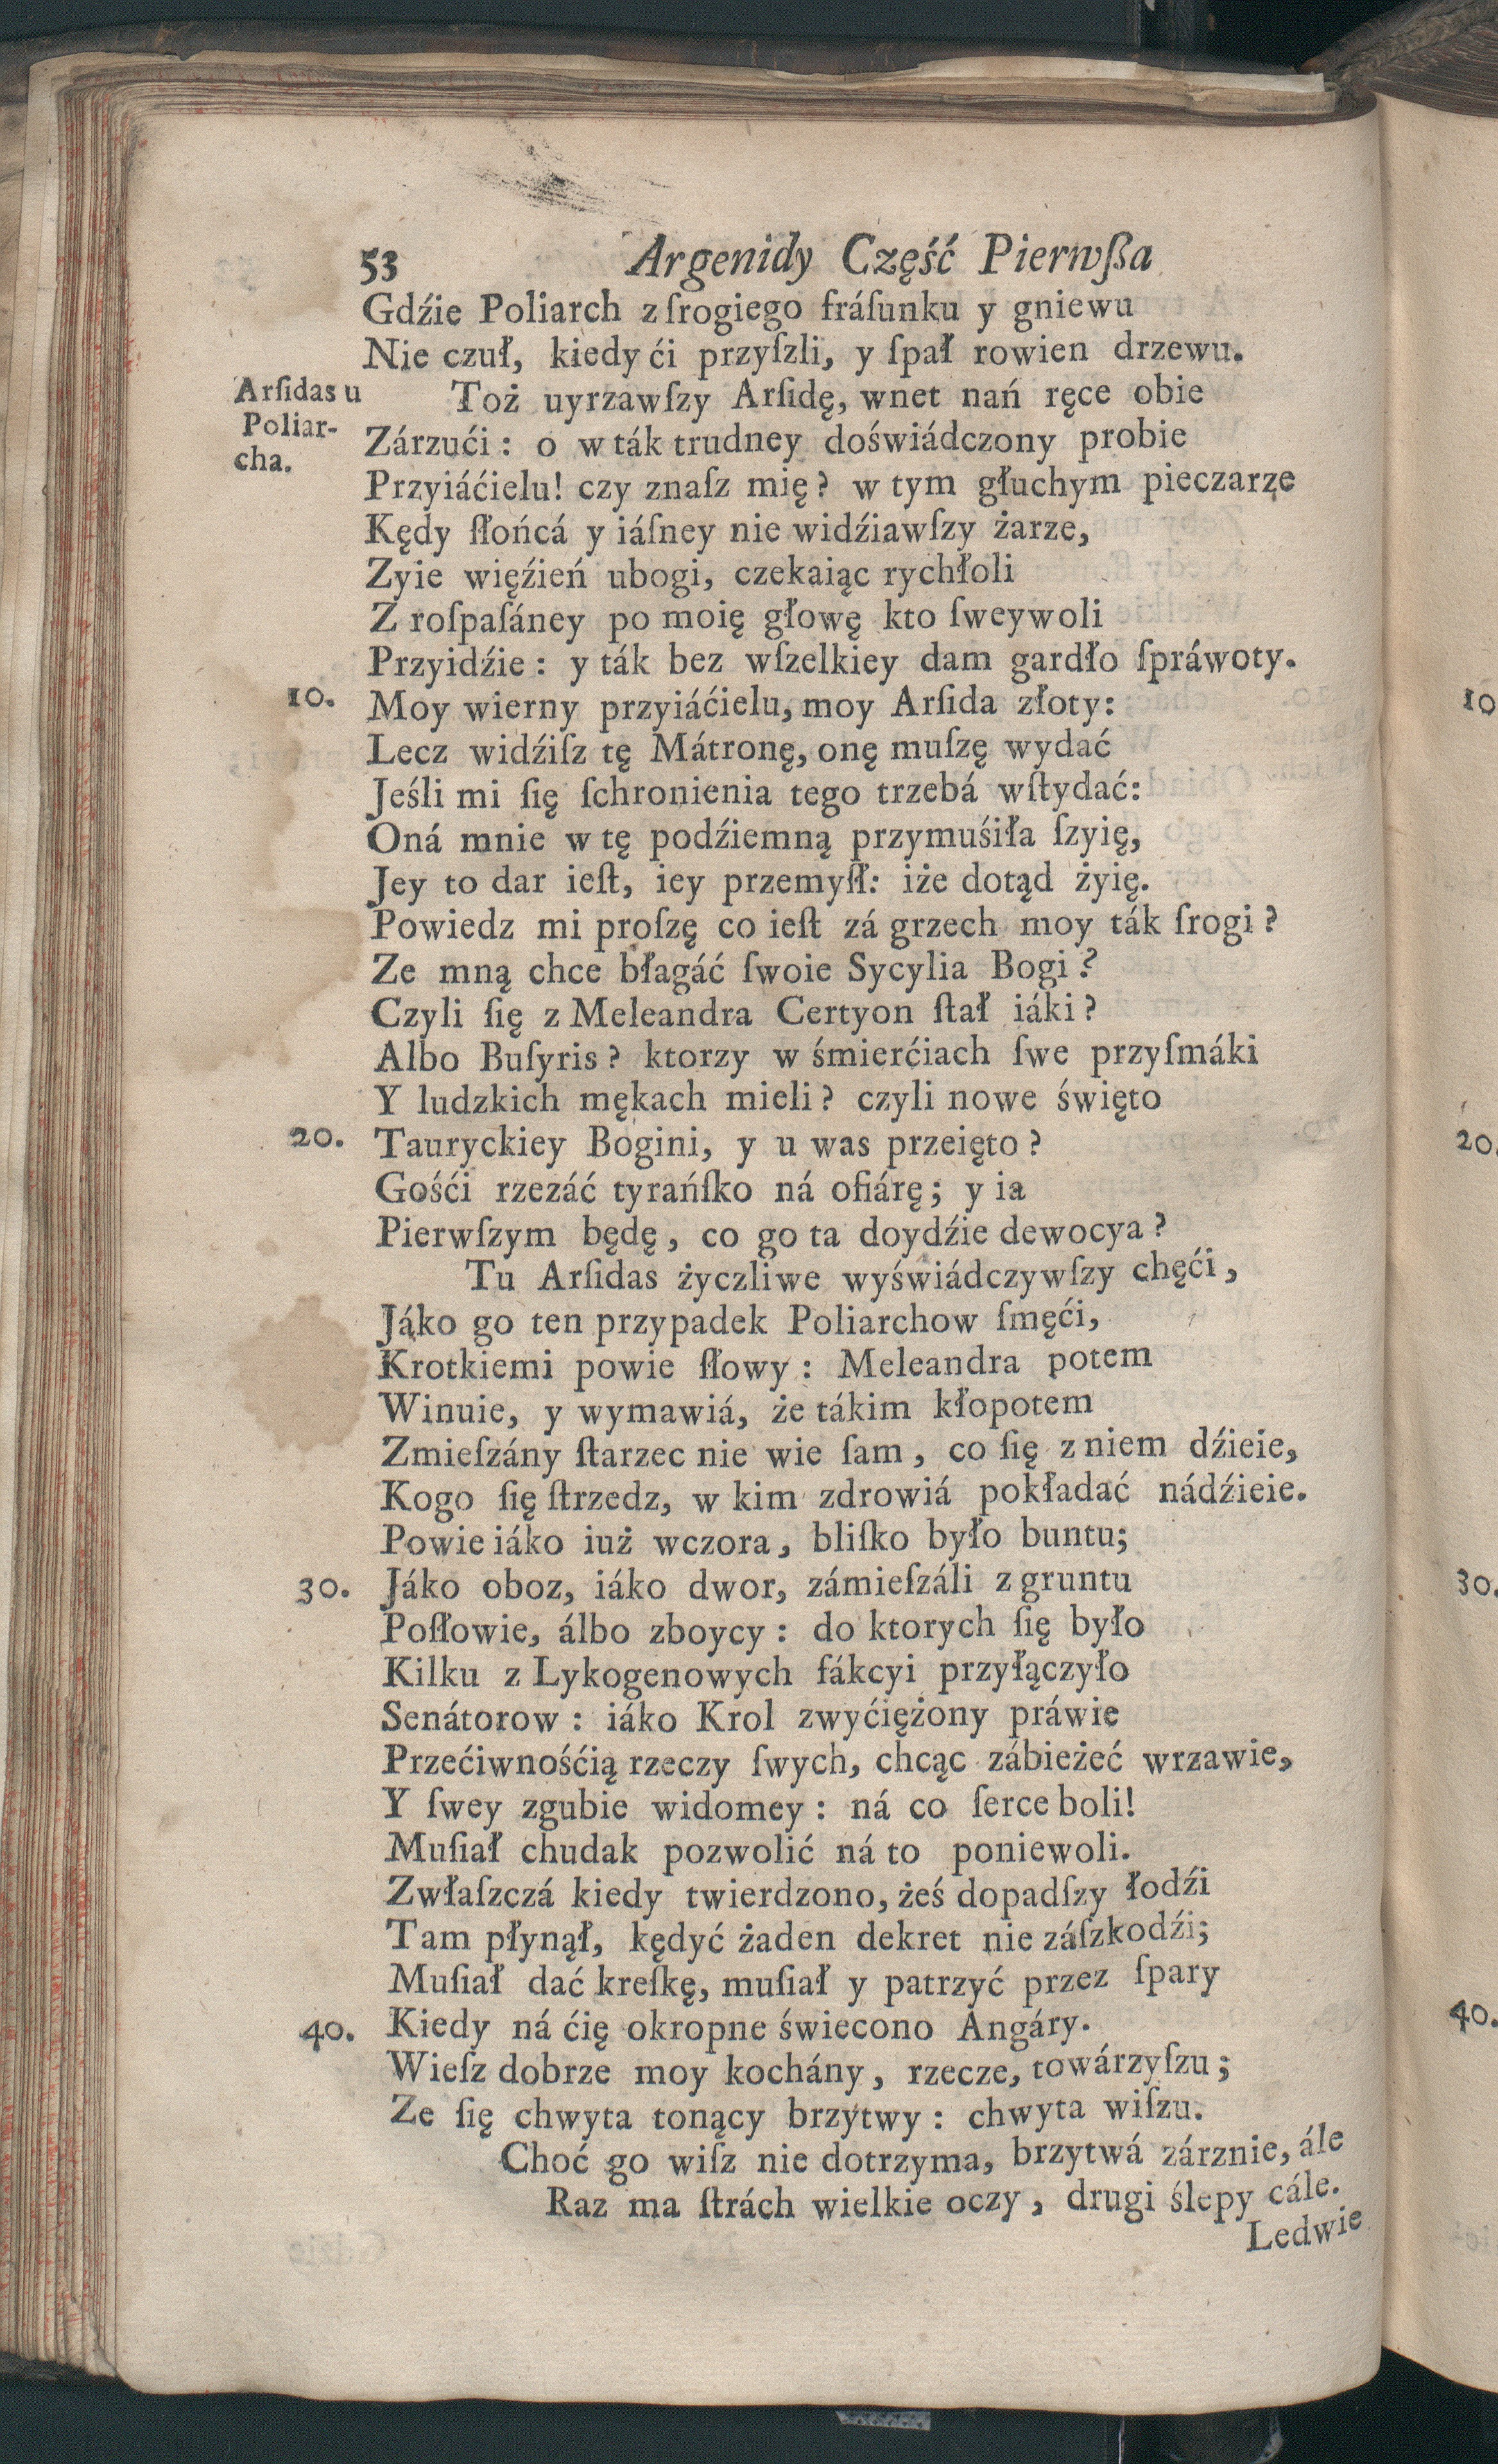 53 Argenidy Część Pierwßa
Gdźie Poliarch z ſrogiego fráſunku y gniewu
Nie czuł, kiedy ći przyſzli, y ſpał rowien drzewu.
Arſidas u Poliar-cha.
Toż uyrzawſzy Arſidę, wnet nań ręce obie
Zárzući: o w ták trudney doświádczony probie
Przyiáćielu! czy znaſz mię? w tym głuchym pieczarze
Kędy ſłońcá y iáſney nie widźiawſzy żarze,
Zyie więźień ubogi, czekaiąc rychłoli
Z roſpaſáney po moię głowę kto ſweywoli
Przyidźie: y ták bez wſzelkiey dam gardło ſpráwoty.
10. Moy wierny przyiáćielu, moy Arſida złoty:
Lecz widźiſz tę Mátronę, onę muſzę wydać
Jeśli mi ſię ſchronienia tego trzebá wſtydać:
Oná mnie w tę podźiemną przymuśiła ſzyię,
Jey to dar ieſt, iey przemyſł: iże dotąd żyię.
Powiedz mi proſzę co ieſt zá grzech moy ták ſrogi?
Ze mną chce błagáć ſwoie Sycylia Bogi?
Czyli ſię z Meleandra Certyon ſtał iáki?
Albo Buſyris? ktorzy w śmierćiach ſwe przyſmáki
Y ludzkich mękach mieli? czyli nowe święto
20. Tauryckiey Bogini, y u was przeięto?
Gośći rzezáć tyráńſko ná ofiárę; y ia
Pierwſzym będę, co go ta doydźie dewocya?
Tu Arſidas życzliwe wyświádczywſzy chęći,
Jáko go ten przypadek Poliarchow ſmęći,
Krotkiemi powie ſłowy: Meleandra potem
Winuie, y wymawiá, że tákim kłopotem
Zmieſzány ſtarzec nie wie ſam, co ſię z niem dźieie,
Kogo ſię ſtrzedz, w kim zdrowiá pokładać nádźieie.
Powie iáko iuż wczora, bliſko było buntu;
30. Jáko oboz, iáko dwor, zámieſzáli z gruntu
Poſłowie, álbo zboycy: do ktorych ſię było
Kilku z Lykogenowych fákcyi przyłączyło
Senátorow: iáko Krol zwyćiężony práwie
Przećiwnośćią rzeczy ſwych, chcąc zábieżeć wrzawie,
Y ſwey zgubie widomey: ná co ſerce boli!
Muſiał chudak pozwolić ná to poniewoli.
Zwłaſzczá kiedy twierdzono, żeś dopadſzy łodźi
Tam płynął, kędyć żaden dekret nie záſzkodźi;
Muſiał dać kreſkę, muſiał y patrzyć przez ſpary
40. Kiedy ná ćię okropne świecono Angáry.
Wieſz dobrze moy kochány, rzecze, towárzyſzu;
Ze ſię chwyta tonący brzytwy: chwyta wiſzu.
Choć go wiſz nie dotrzyma, brzytwá zárznie, ále
Raz ma ſtrách wielkie oczy, drugi ślepy cále.
Ledwie
10
20.
30.
40.